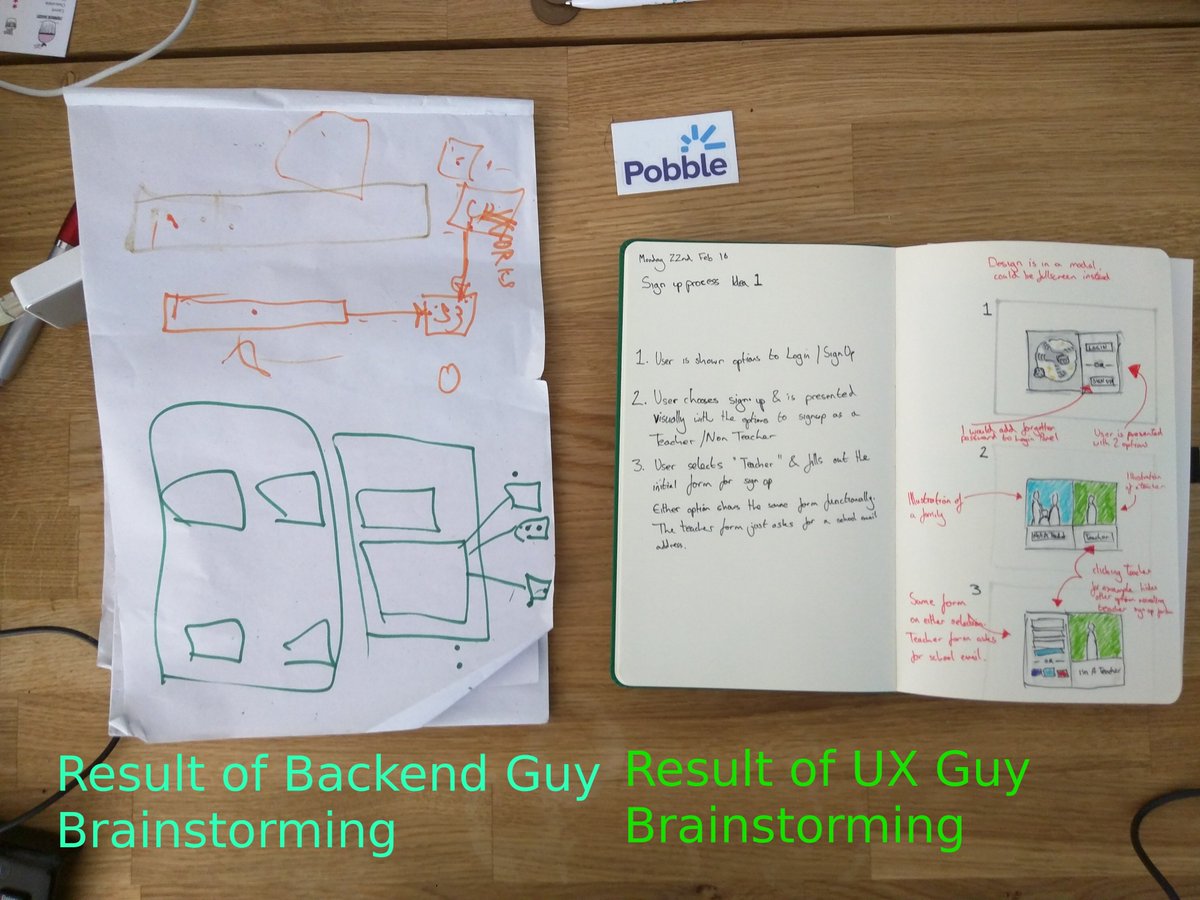 Pobble
Monday 22nd Feb 16
Sign up process Idea 1
1. User is shown options to Login / Sign Up
2. User chooses sign up & is presented
visually with the options to signup as a
Teacher / Non Teacher
3. User selects "Teacher" & fills out the
initial form for sign up
Either option shows the same form functionally.
The teacher form just asks for a school email
address.
Design is in a modal
could be fullscreen instead
1
LOGIN
OR
SIGN UP
I would add forgotten
password to Login Panel
User is presented
with 2 options
2
Illustration of
a family
Illustration
of a teacher
Teacher
clicking Teacher
for example hides
other option revealing
teacher sign up form
3
Same form
on either selection.
Teacher form asks
for school email.
OR
I'm A Teacher
Result of Backend Guy
Brainstorming
Result of UX Guy
Brainstorming